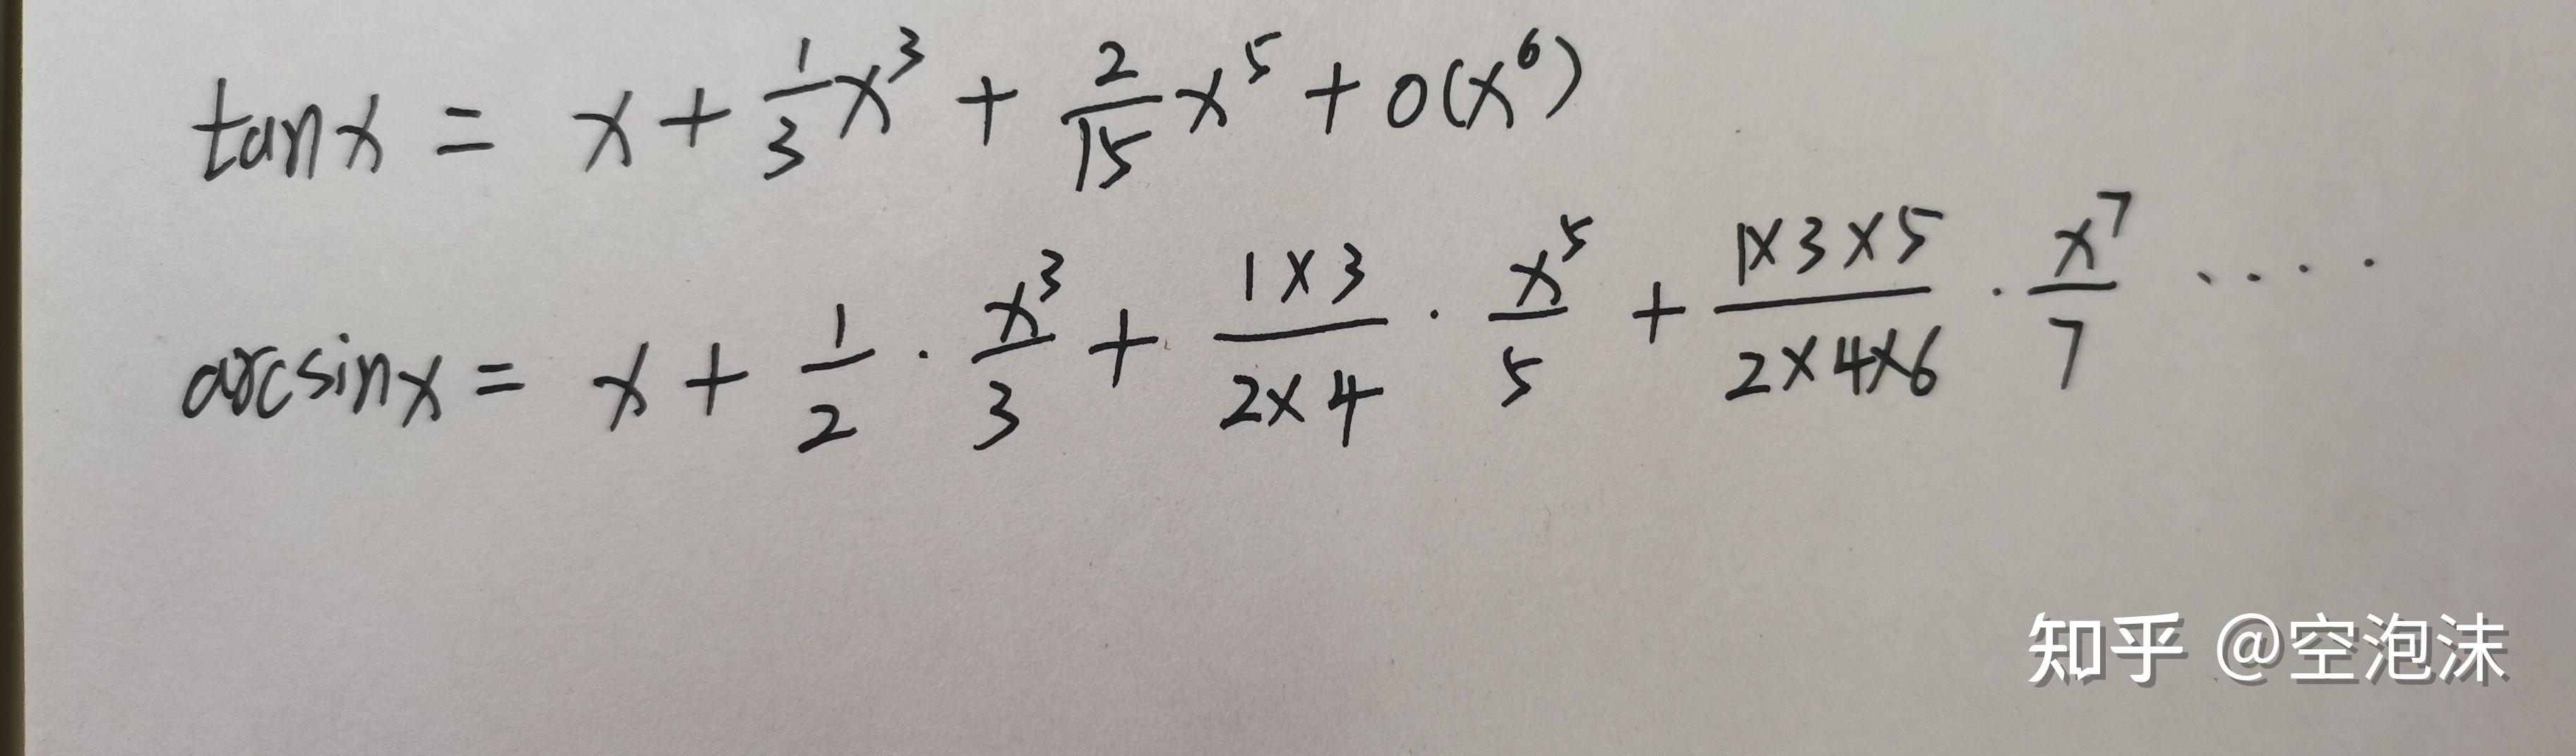 tanx = x + 1/3 x³ + 2/15 x⁵ + o(x⁶)
arcsinx = x + 1/2 · x³/3 + 1×3/2×4 · x⁵/5 + 1×3×5/2×4×6 · x⁷/7 ....
知乎 @空泡沫